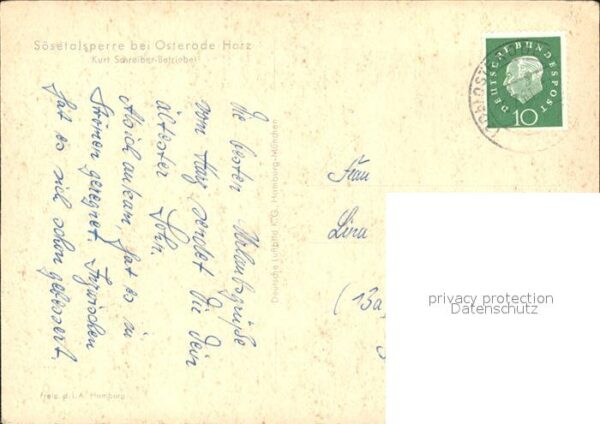 Sösetalsperre bei Osterode Harz
Kurt Schreiber-Betriebe
Die besten Urlaubsgrüße
vom Harz sendet Dir Dein
ältester Sohn.
Als ich ankam, hat es in
Strömen geregnet. Inzwischen
hat es sich schon gebessert.
Deutsche Luftbild K.G. Hamburg-München
Freig. d. L.A. Hamburg
DEUTSCHE BUNDESPOST
10
Frau
Lina
(13a)
privacy protection
Datenschutz